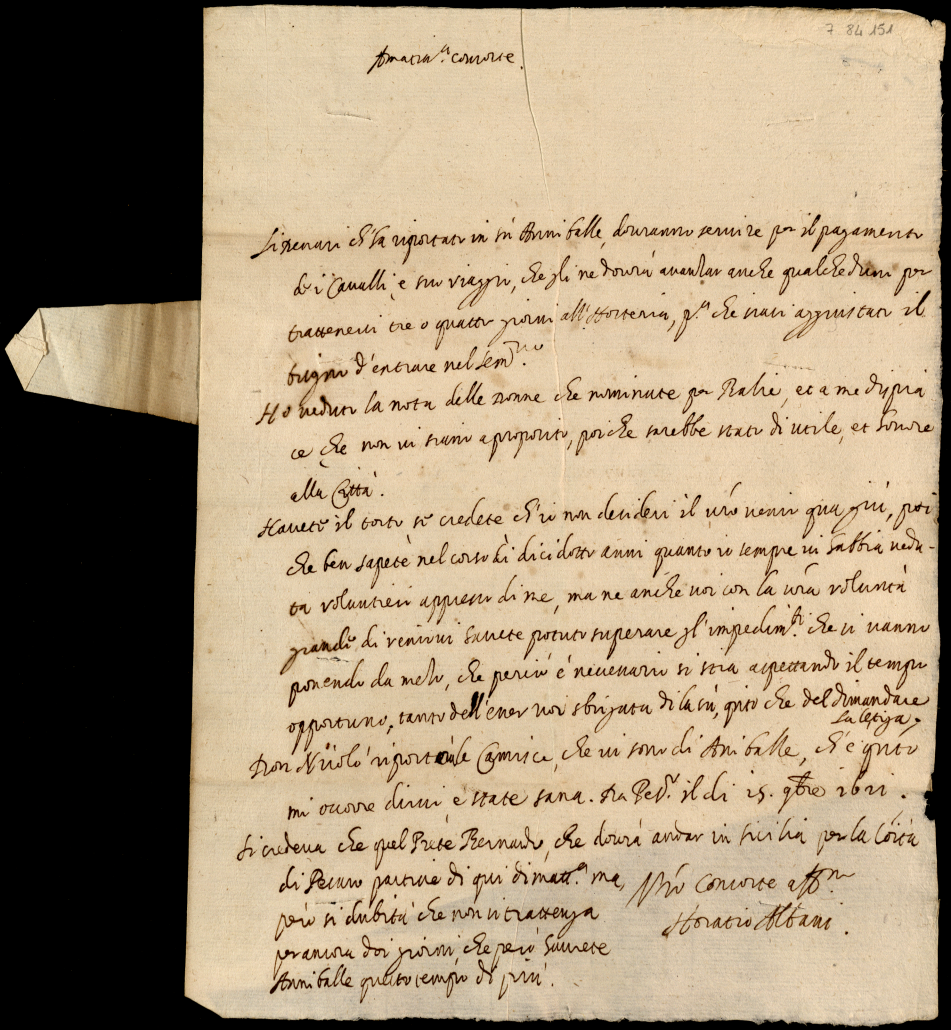 7 84 151
Amatis.ma consorte.
Li denari ch'ha riportati in sù Anniballe, douranno seruire per il pagamento
de i Caualli, e suo viaggio, che gli ne dourà auanzar anche qualcheduno per
trattenersi tre o quattro giorni all'Hosteria, p.a che siasi aggiustato il
bisogno d'entrare nel Sem.rio.
Hò ueduto la nota delle donne che nominate per Balie, et a me dispia
ce che non ui siano a proposito, poiche sarebbe stato di utile, et honore
alla Città.
Hauete il torto se credete ch'io non desideri il uro uenir qua giù, poi
che ben sapete nel corso di dicidotto anni quanto io sempre ui habbia uedu-
ta volontieri appresso di me, ma ne anche uoi con la ura voluntà
grande di venirui hauete potuto superare gl'impedim.ti che ui vanno
ponendo da mezo, che perciò è necessario si stia aspettando il tempo
opportuno, tanto dell'esser uoi sbrigata di la sù, qnto che del dimandare
la letiga,
Don Nicolò riportò le Camisce, che ui sono di Aniballe, ch'è qnto
mi occorre dirui e state sana. Da Pes.o il di 15. 9bre 1621.
Si credeua che quel Prete Bernardo, che dourà andar in Sicilia per la Città
di Pesaro partisse di qui dimatt.a ma,
però si dubita che non si trattenga
per ancora doi giorni, che però hauete
Anniballe questo tempo di più.
Vro Consorte aff.mo
Horatio Albani.